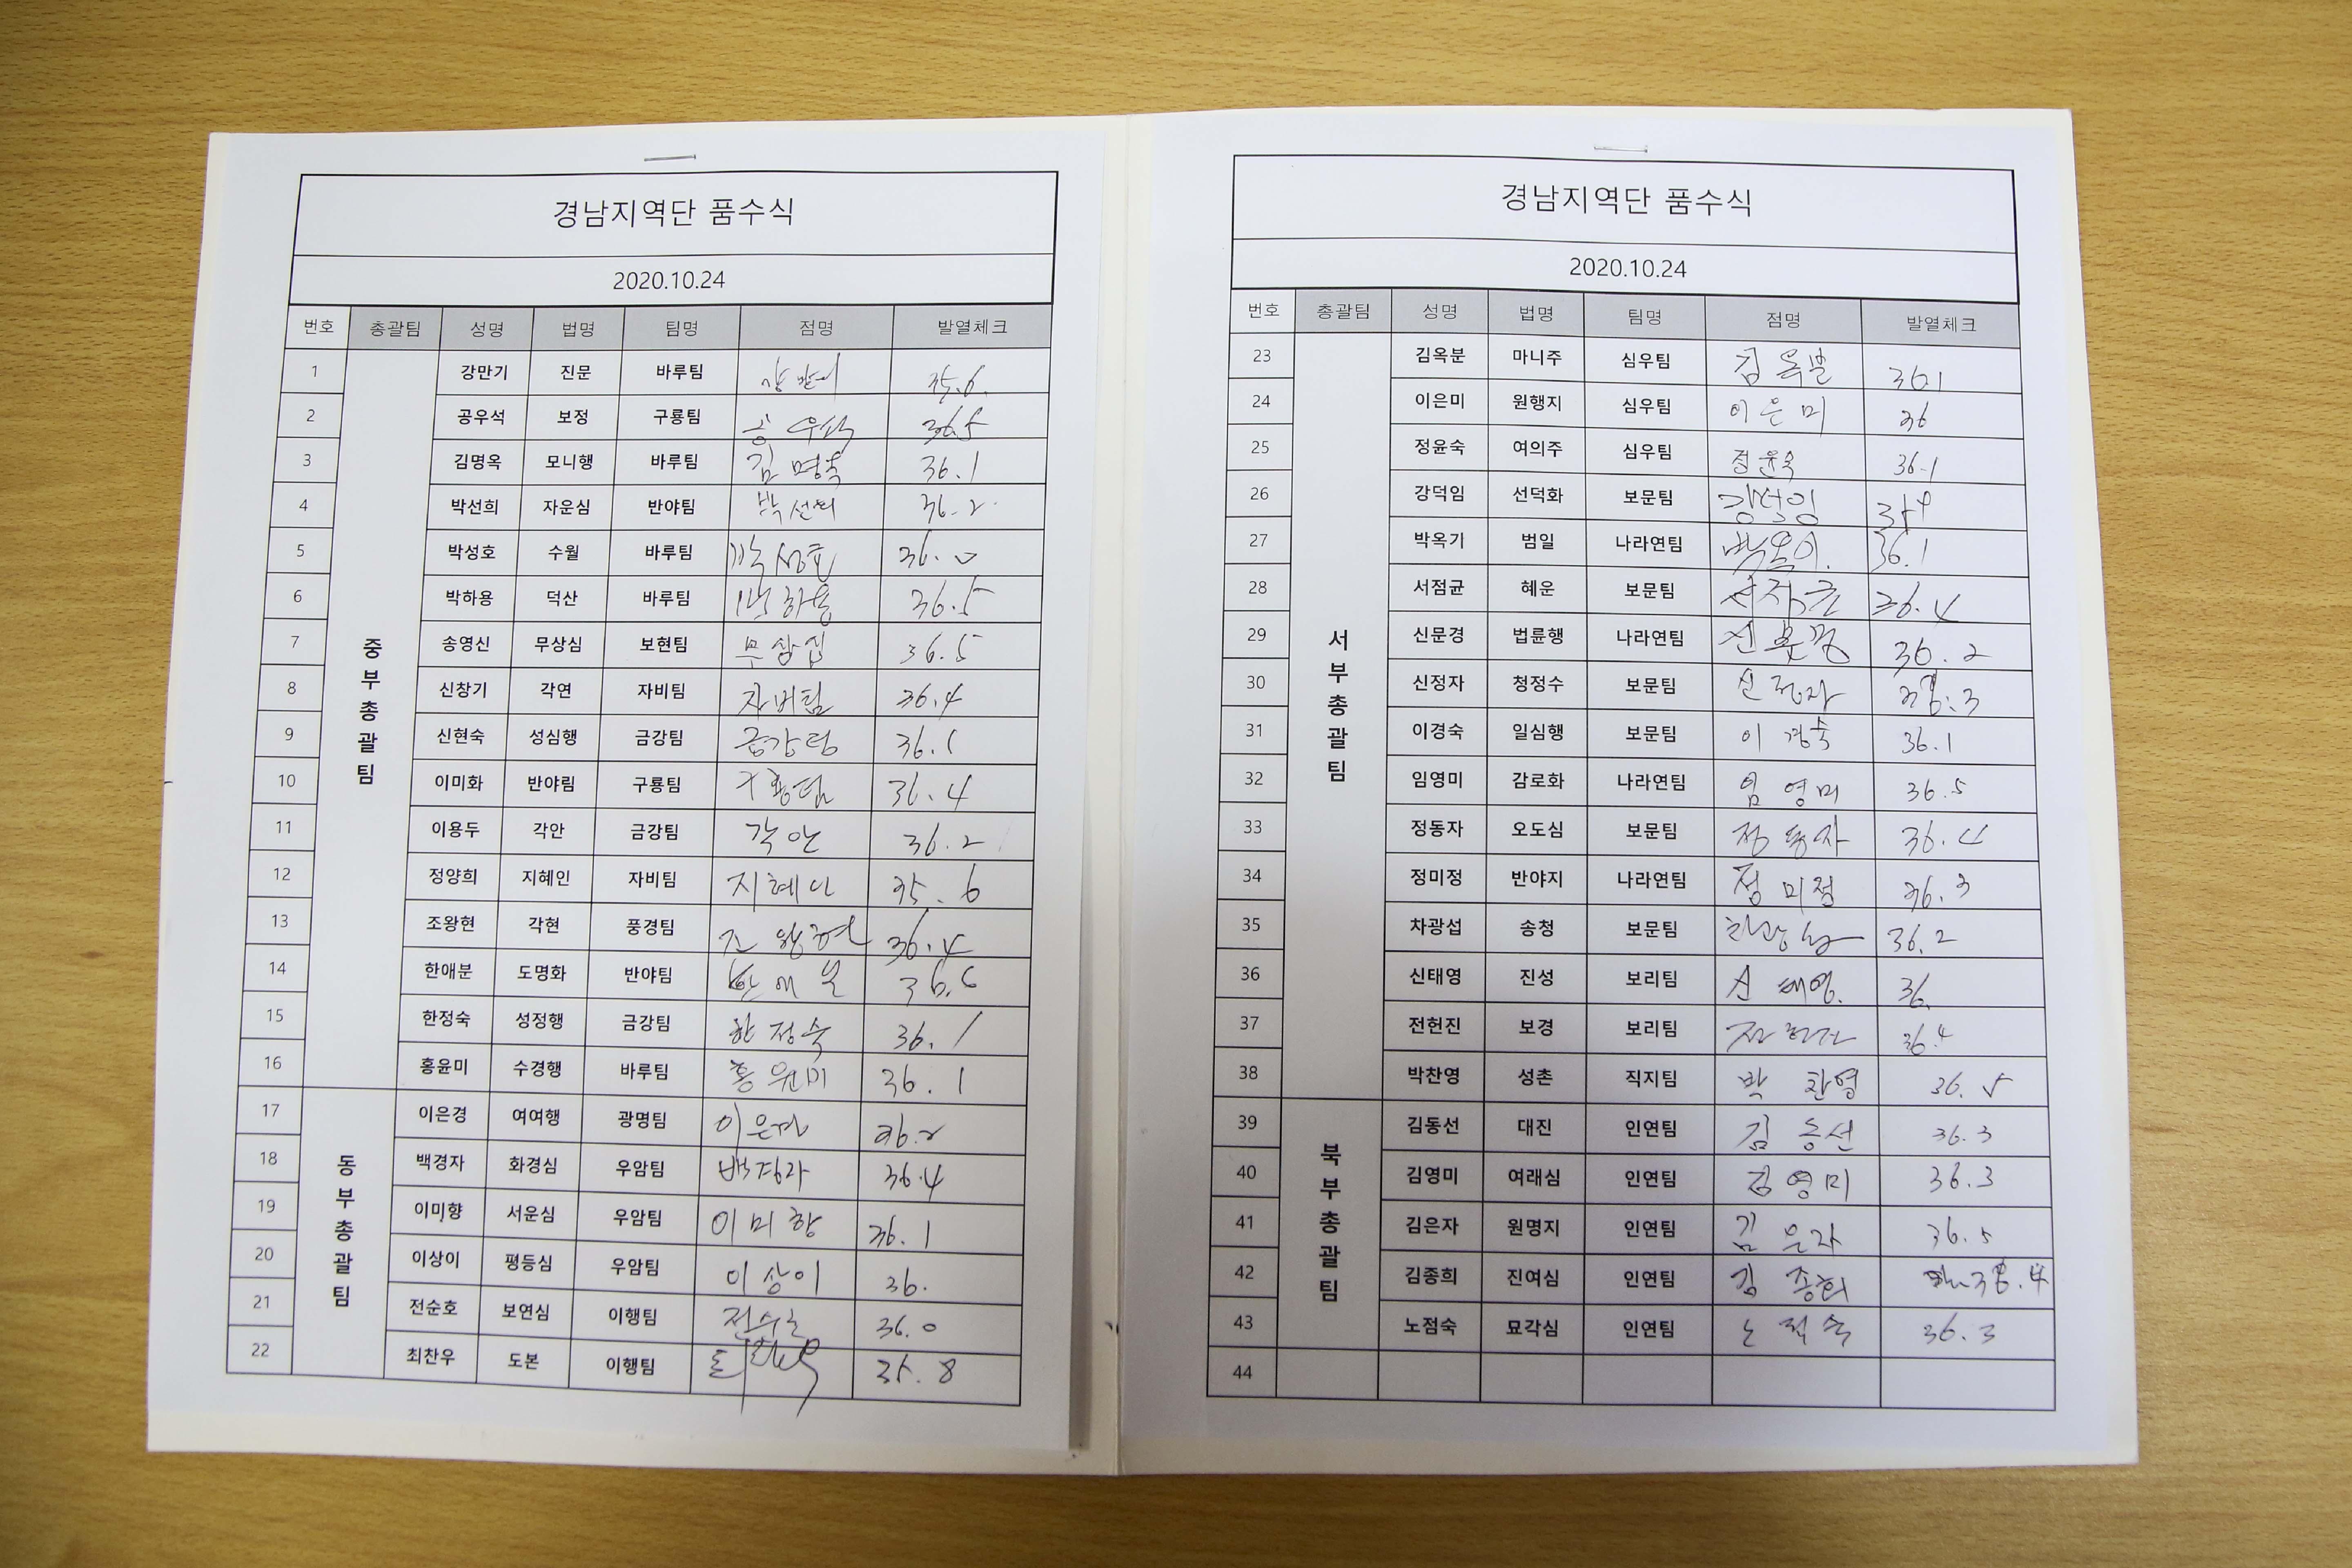 경남지역단 품수식
2020.10.24
번호 총괄팀 성명 법명 팀명 점명 발열체크
중부총괄팀
1 강만기 진문 바루팀 35.6.
2 공우석 보정 구룡팀 공우석 36.5
3 김명옥 모니행 바루팀 김명옥 36.1
4 박선희 자운심 반야팀 박선희 36.2
5 박성호 수월 바루팀 박성호 36.0
6 박하용 덕산 바루팀 박하용 36.5
7 송영신 무상심 보현팀 무상심 36.5
8 신창기 각연 자비팀 자비팀 36.4
9 신현숙 성심행 금강팀 금강팀 36.1
10 이미화 반야림 구룡팀 구룡팀 36.4
11 이용두 각안 금강팀 각안 36.2
12 정양희 지혜인 자비팀 지혜인 35.6
13 조왕현 각현 풍경팀 조왕현 36.4
14 한애분 도명화 반야팀 한애분
15 한정숙 성정행 금강팀 한정숙 36.1
16 홍윤미 수경행 바루팀 홍윤미 36.1
동부총괄팀
17 이은경 여여행 광명팀 이은경 36.2
18 백경자 화경심 우암팀 백경자 36.4
19 이미향 서운심 우암팀 이미향 36.1
20 이상이 평등심 우암팀 이상이 36.
21 전순호 보연심 이행팀 전순호 36.0
22 최찬우 도본 이행팀 최찬우 35.8
경남지역단 품수식
2020.10.24
번호 총괄팀 성명 법명 팀명 점명 발열체크
서부총괄팀
23 김옥분 마니주 심우팀 김옥분 36.1
24 이은미 원행지 심우팀 이은미 36
25 정윤숙 여의주 심우팀 정윤숙 36.1
26 강덕임 선덕화 보문팀 강덕임
27 박옥기 범일 나라연팀 박옥기. 36.1
28 서점균 혜운 보문팀 서점균 36.4
29 신문경 법륜행 나라연팀 신문경 36.2
30 신정자 청정수 보문팀 신정자 36.3
31 이경숙 일심행 보문팀 이경숙 36.1
32 임영미 감로화 나라연팀 임영미 36.5
33 정동자 오도심 보문팀 정동자 36.4
34 정미정 반야지 나라연팀 정미정 36.3
35 차광섭 송청 보문팀 차광섭 36.2
36 신태영 진성 보리팀 신태영. 36.
37 전헌진 보경 보리팀 전헌진 36.4
38 박찬영 성촌 직지팀 박찬영 36.5
북부총괄팀
39 김동선 대진 인연팀 김동선 36.3
40 김영미 여래심 인연팀 김영미 36.3
41 김은자 원명지 인연팀 김은자 36.5
42 김종희 진여심 인연팀 김종희 36.4
43 노점숙 묘각심 인연팀 노점숙 36.3
44